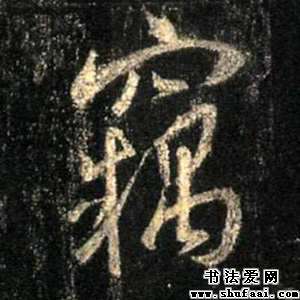 竊
书法爱网
www.shufaai.com